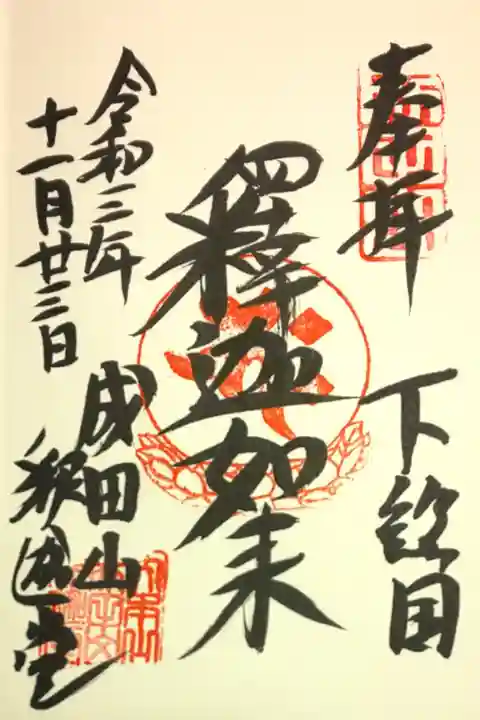 奉拝
下総国
釋迦如来
令和三年
十一月廿三日
成田山
釈迦堂